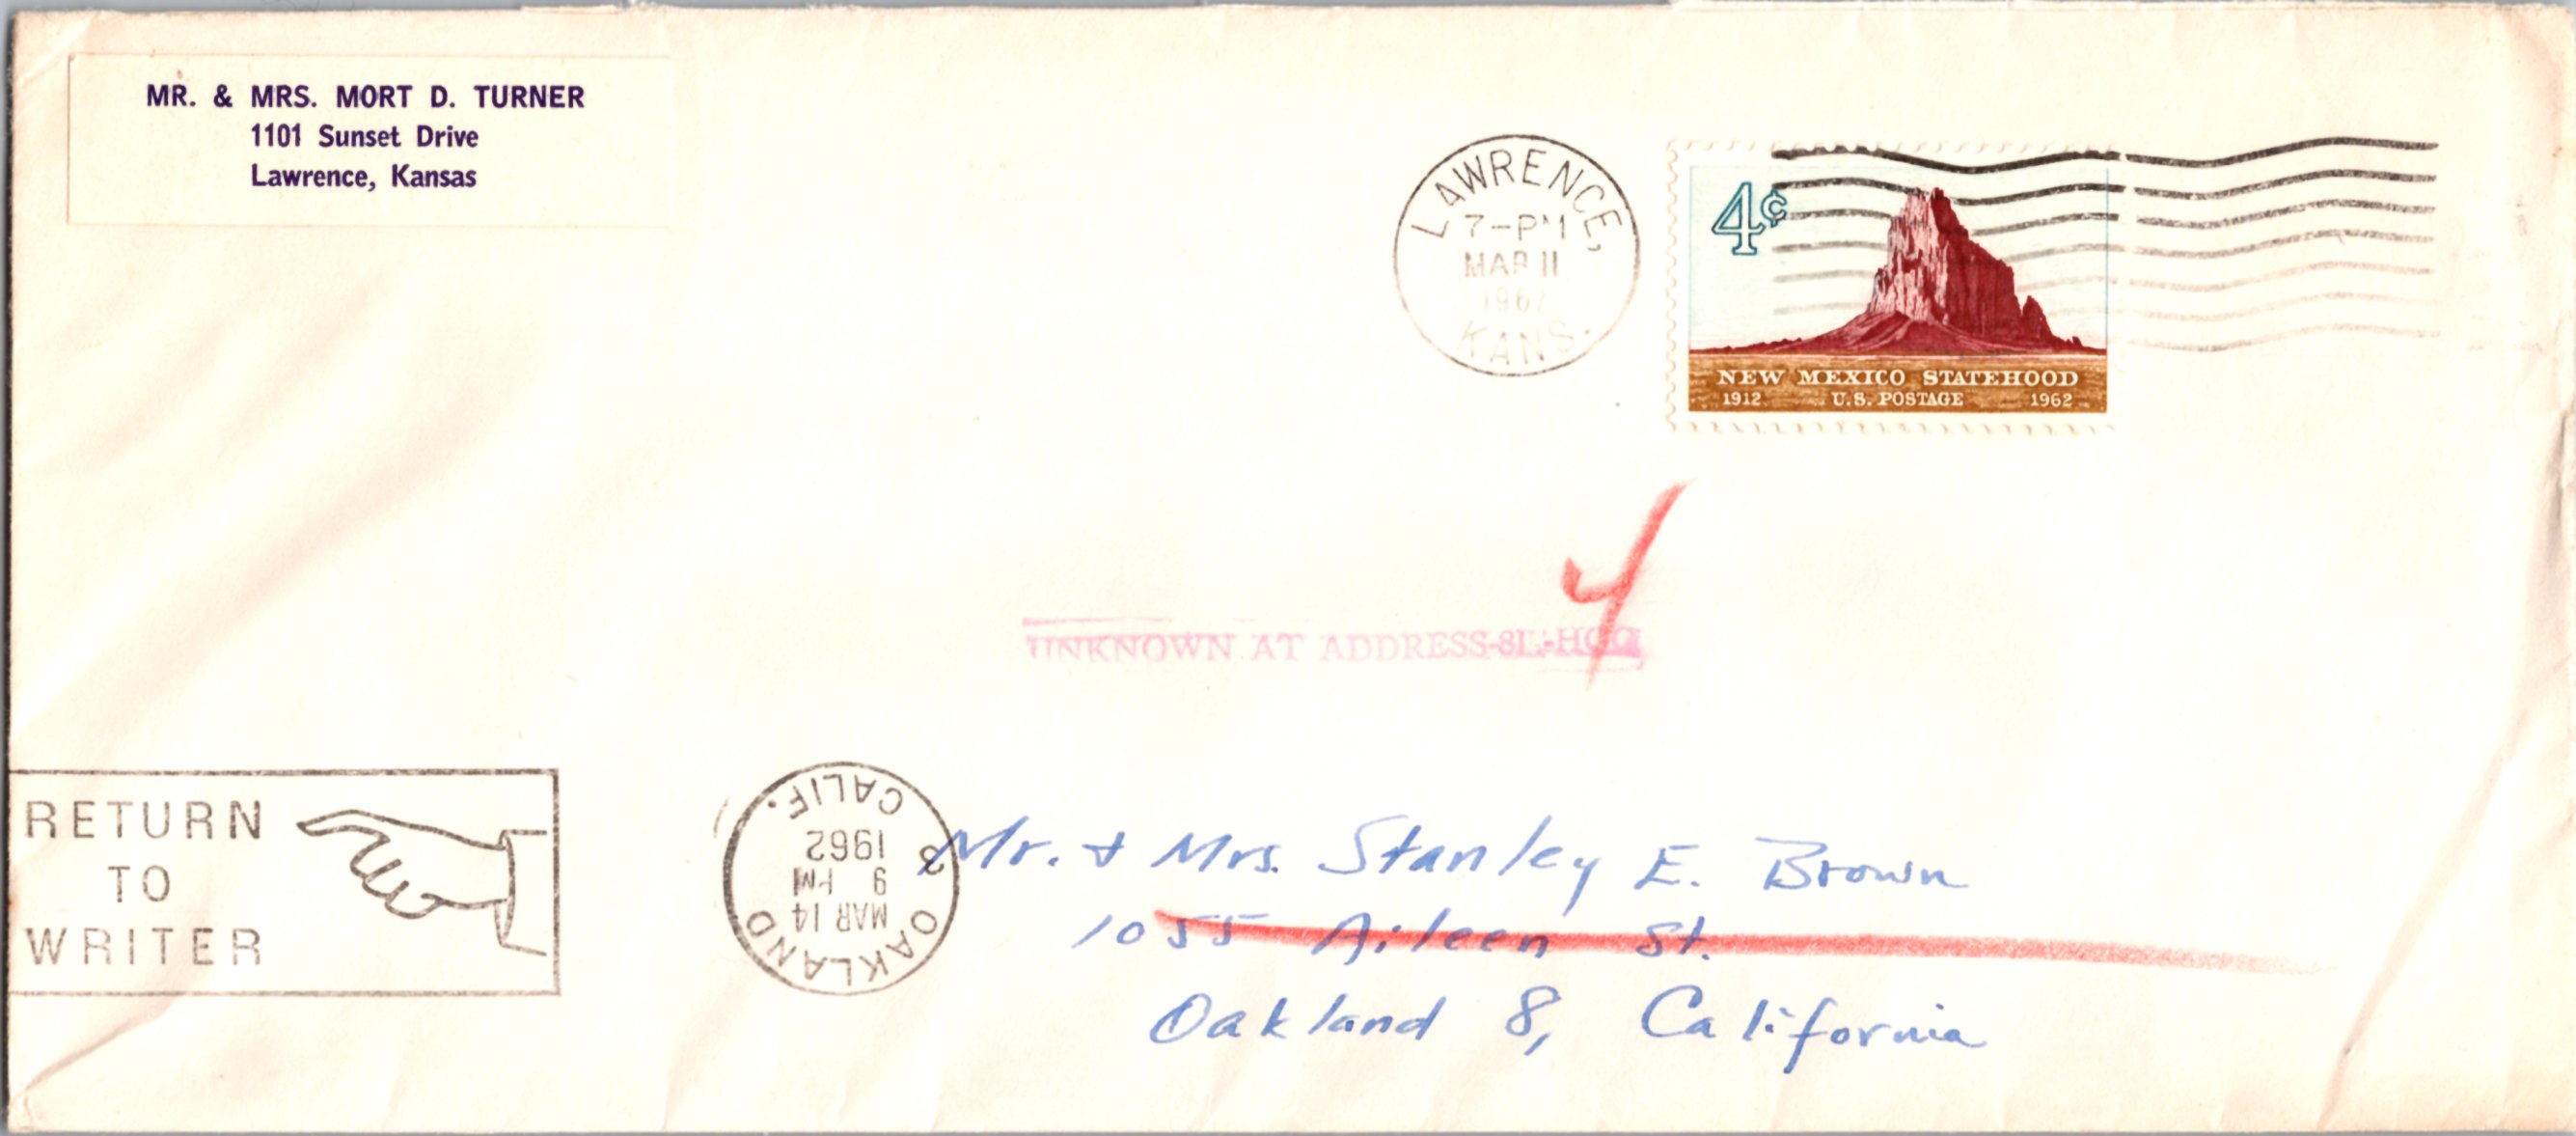 MR. & MRS. MORT D. TURNER
1101 Sunset Drive
Lawrence, Kansas
LAWRENCE,
7-PM
MAR 11
196
KANS.
4¢
NEW MEXICO STATEHOOD
1912 U.S. POSTAGE 1962
4
UNKNOWN AT ADDRESS
RETURN
TO
WRITER
OAKLAND
MAR 14
9 PM
1962
CALIF.
Mr. + Mrs. Stanley E. Brown
1055 Aileen St.
Oakland 8, California